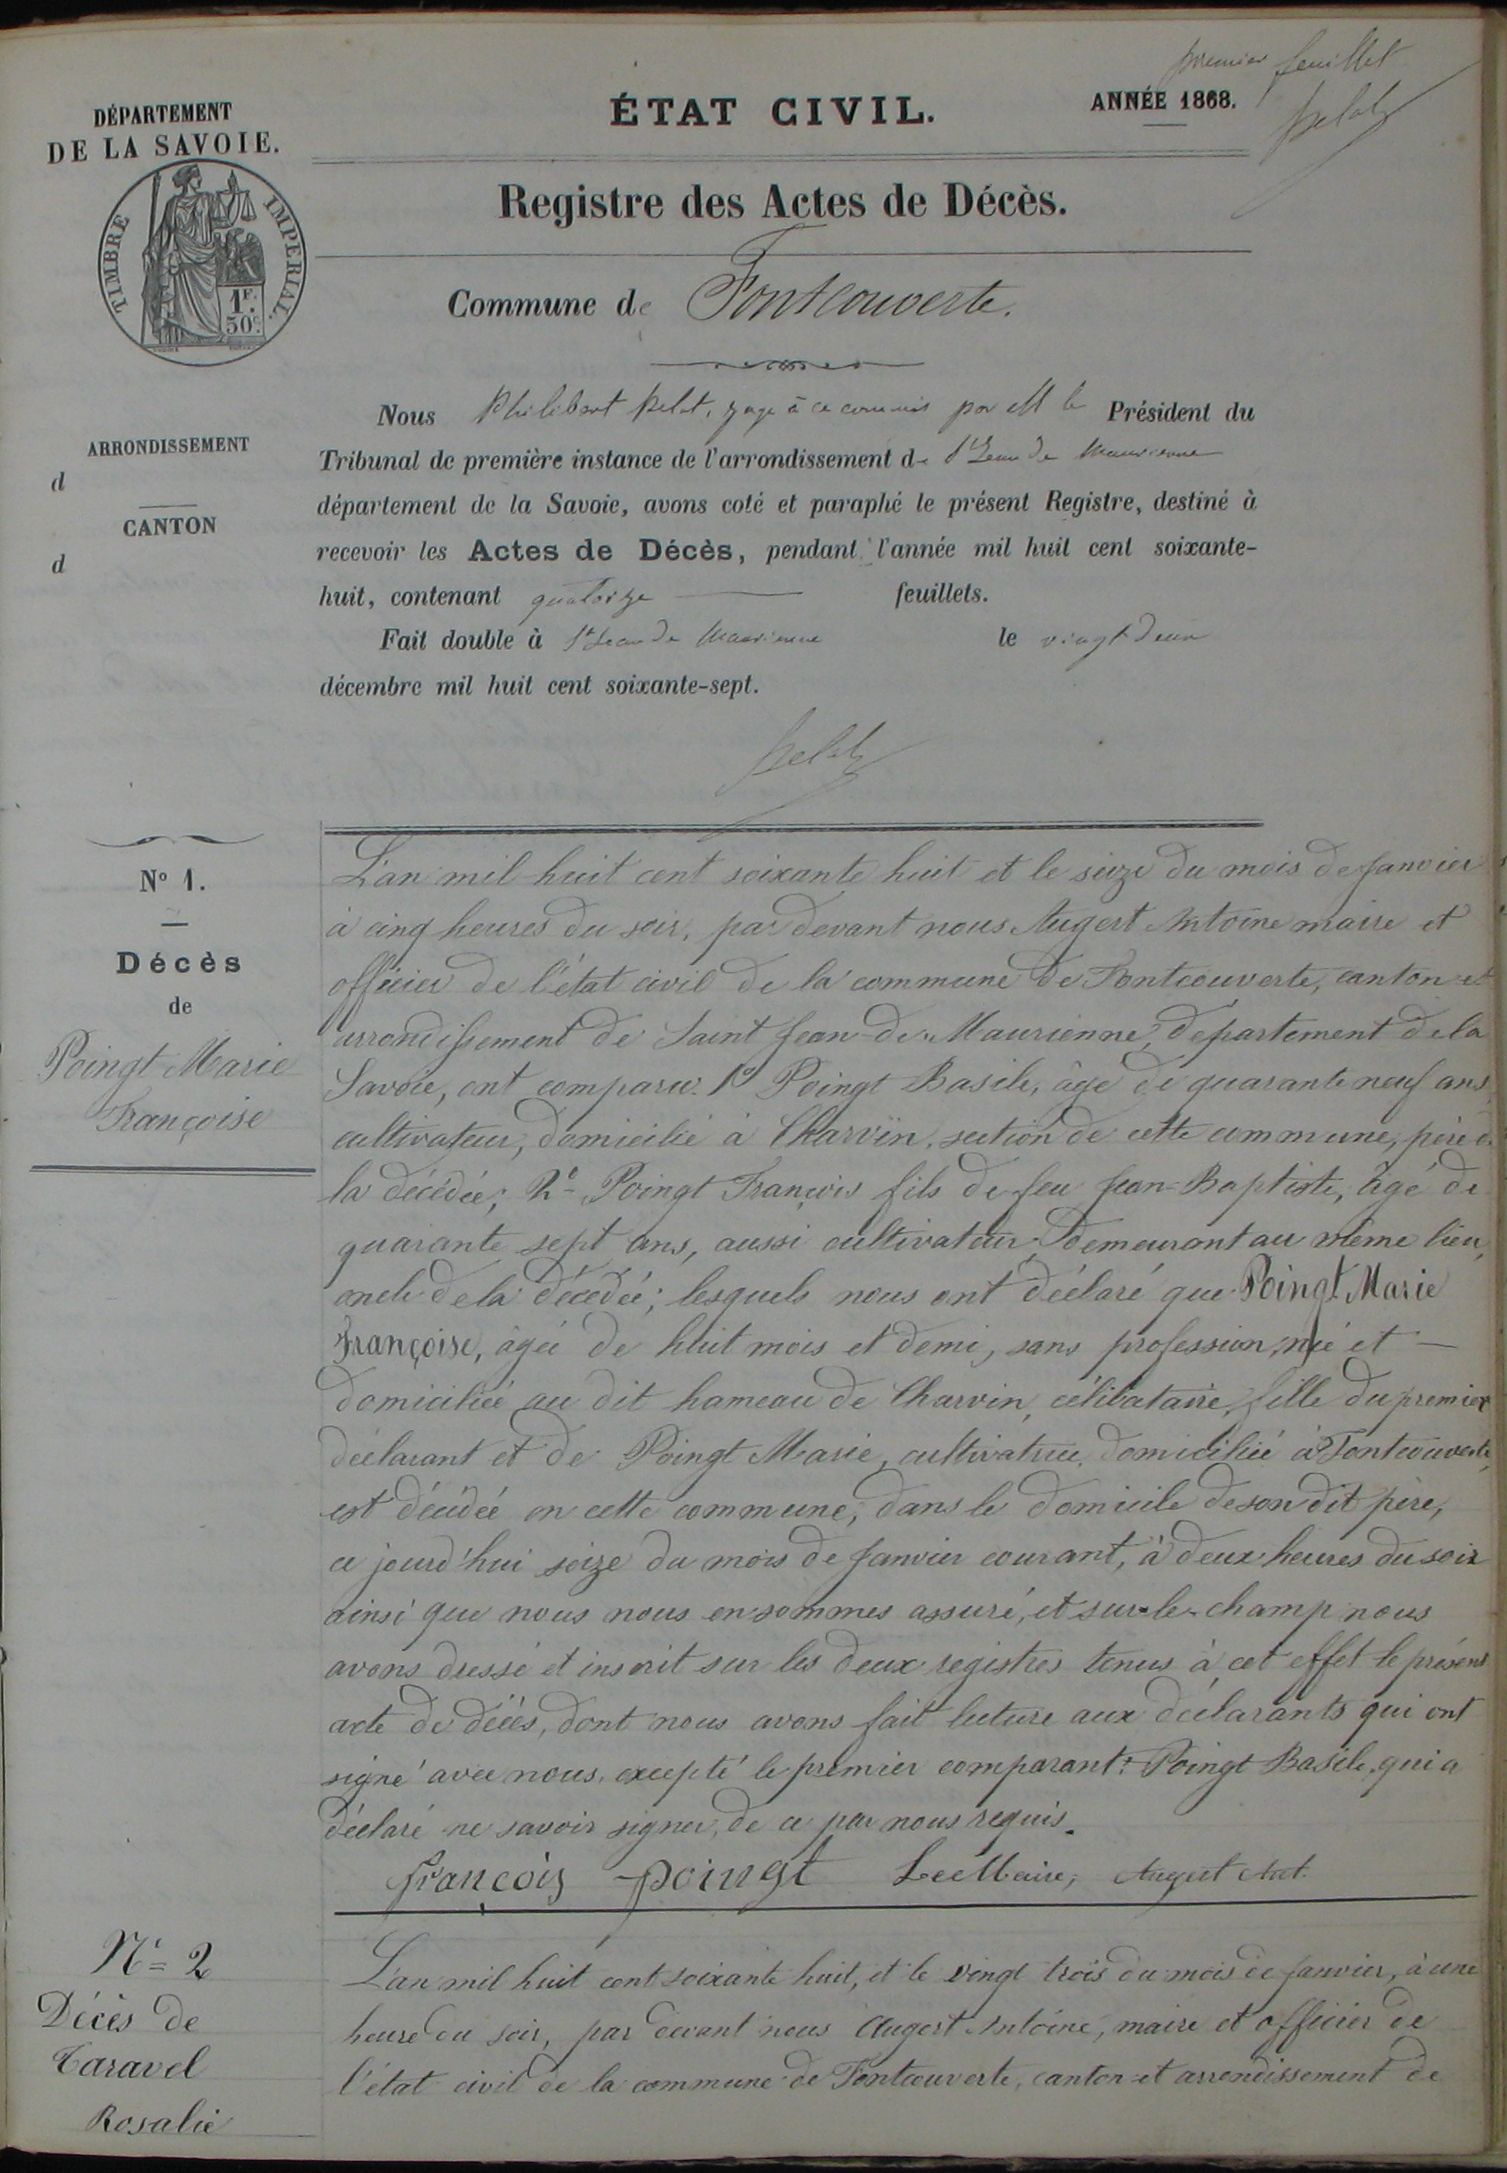 premier feuillet
DÉPARTEMENT
DE LA SAVOIE.
ÉTAT CIVIL.
ANNÉE 1868.
TIMBRE IMPERIAL.
1F.
50c.
Registre des Actes de Décès.
Commune de Fontcouverte.
Nous Philibert juge à ce commis par M le Président du
ARRONDISSEMENT
d
Tribunal de première instance de l'arrondissement de St Jean de Maurienne
département de la Savoie, avons coté et paraphé le présent Registre, destiné à
CANTON
d
recevoir les Actes de Décès, pendant l'année mil huit cent soixante-
huit, contenant quatorze feuillets.
Fait double à St Jean de Maurienne le vingt deux
décembre mil huit cent soixante-sept.
No 1.
Décès
de
Poingt Marie
Françoise
L'an mil huit cent soixante huit et le seize du mois de Janvier
à cinq heures du soir, par devant nous Augert Antoine maire et
officier de l'état civil de la commune de Fontcouverte, canton et
arrondissement de Saint Jean-de-Maurienne, departement de la
Savoie, ont comparu: 1o Poingt Basile, âgé de quarante neuf ans,
cultivateur, domicilié à Charvin, section de cette commune, père de
la décédée; 2o Poingt François fils de feu Jean-Baptiste, âgé de
quarante sept ans, aussi cultivateur, demeurant au même lieu,
oncle de la décédée; lesquels nous ont déclaré que Poingt Marie
Françoise, âgée de huit mois et demi, sans profession, née et
domiciliée au dit hameau de Charvin, célibataire, fille du premier
déclarant et de Poingt Marie, cultivatrice, domiciliée à Fontcouverte,
est décédée en cette commune, dans le domicile de son dit père,
ce jourd'hui seize du mois de Janvier courant, à deux heures du soir
ainsi que nous nous en sommes assuré, et sur-le-champ nous
avons dressé et inscrit sur les deux registres tenus à cet effet le présent
acte de décès, dont nous avons fait lecture aux déclarants qui ont
signé avec nous, excepté le premier comparant: Poingt Basile, qui a
déclaré ne savoir signer, de ce par nous requis.
françois poingt Le Maire, Augert Ant.
No 2
Décès de
Taravel
Rosalie
L'an mil huit cent soixante huit, et le vingt trois du mois de Janvier, à une
heure du soir, par devant nous Augert Antoine, maire et officier de
l'état civil de la commune de Fontcouverte, canton et arrondissement de